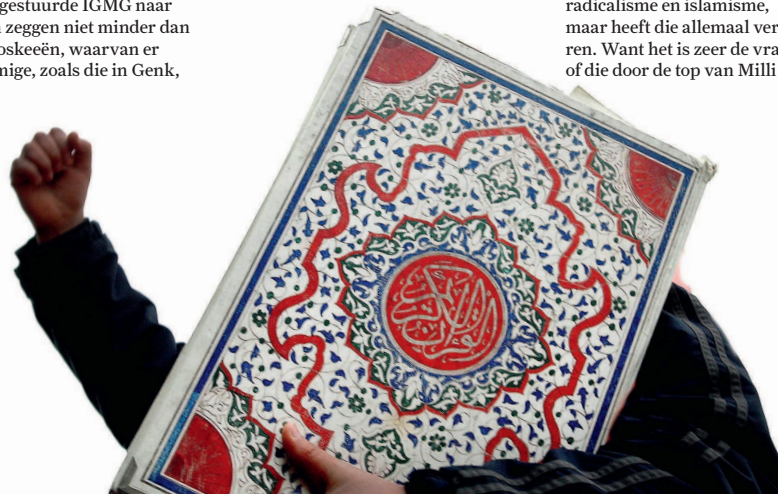 gestuurde IGMG naar
zeggen niet minder dan
oskeeën, waarvan er
mige, zoals die in Genk,
radicalisme en islamisme,
maar heeft die allemaal ver
ren. Want het is zeer de vra
of die door de top van Milli
القرآن الكريم